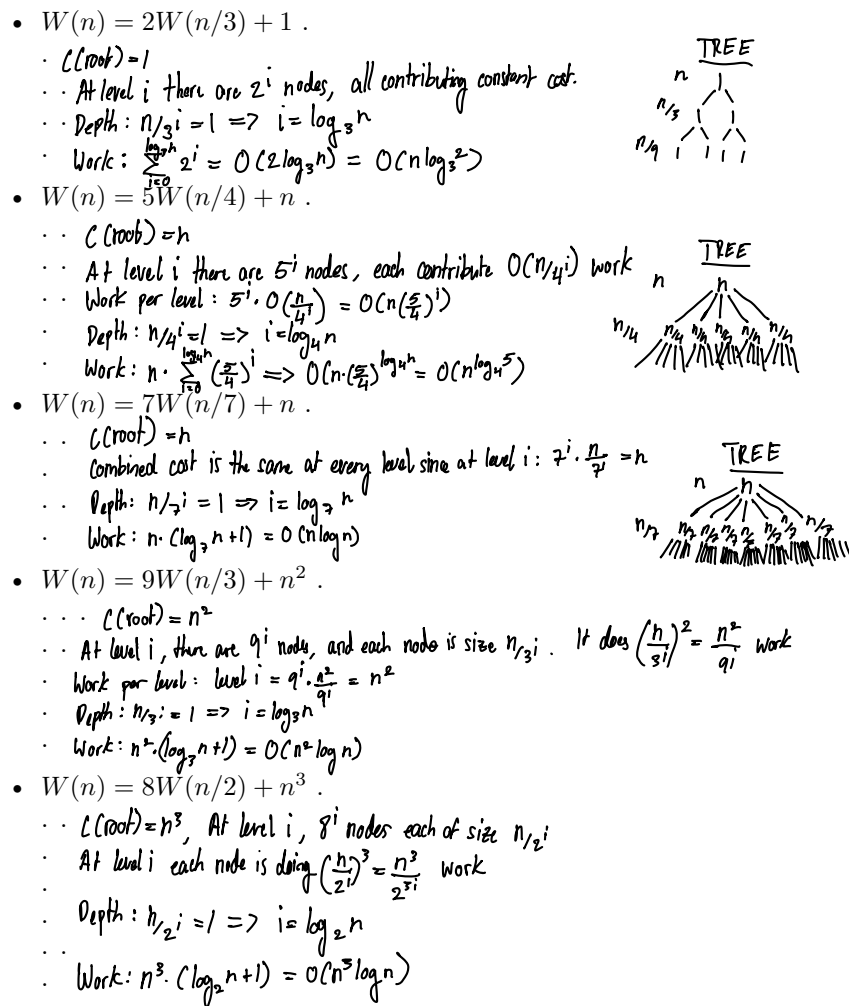 • W(n) = 2W(n/3) + 1 .
· C(root) = 1
· · At level i there are 2^i nodes, all contributing constant cost.
· · Depth: n/3^i = 1 => i = log_3 n
· Work: ∑_{i=0}^{log_3 n} 2^i = O(2^{log_3 n}) = O(n^{log_3 2})
TREE
n
n/3
n/9
• W(n) = 5W(n/4) + n .
· · C(root) = n
· · At level i there are 5^i nodes, each contribute O(n/4^i) work
· · Work per level: 5^i · O(n/4^i) = O(n(5/4)^i)
· Depth: n/4^i = 1 => i = log_4 n
· Work: n · ∑_{i=0}^{log_4 n} (5/4)^i => O(n·(5/4)^{log_4 n} = O(n^{log_4 5})
TREE
n n
n/4 n/4 n/4 n/4 n/4 n/4
• W(n) = 7W(n/7) + n .
· · C(root) = n
· Combined cost is the same at every level since at level i: 7^i · n/7^i = n
· · Depth: n/7^i = 1 => i = log_7 n
· Work: n · (log_7 n + 1) = O(n log n)
TREE
n n
n/7 n/7 n/7 n/7 n/7 n/7 n/7 n/7
• W(n) = 9W(n/3) + n^2 .
· · · C(root) = n^2
· · At level i, there are 9^i nodes, and each node is size n/3^i . It does (n/3^i)^2 = n^2/9^i work
· Work per level: level i = 9^i · n^2/9^i = n^2
· Depth: n/3^i = 1 => i = log_3 n
· Work: n^2 · (log_3 n + 1) = O(n^2 log n)
• W(n) = 8W(n/2) + n^3 .
· · C(root) = n^3, At level i, 8^i nodes each of size n/2^i
· At level i each node is doing (n/2^i)^3 = n^3/2^{3i} work
· Depth: n/2^i = 1 => i = log_2 n
· Work: n^3 · (log_2 n + 1) = O(n^3 log n)